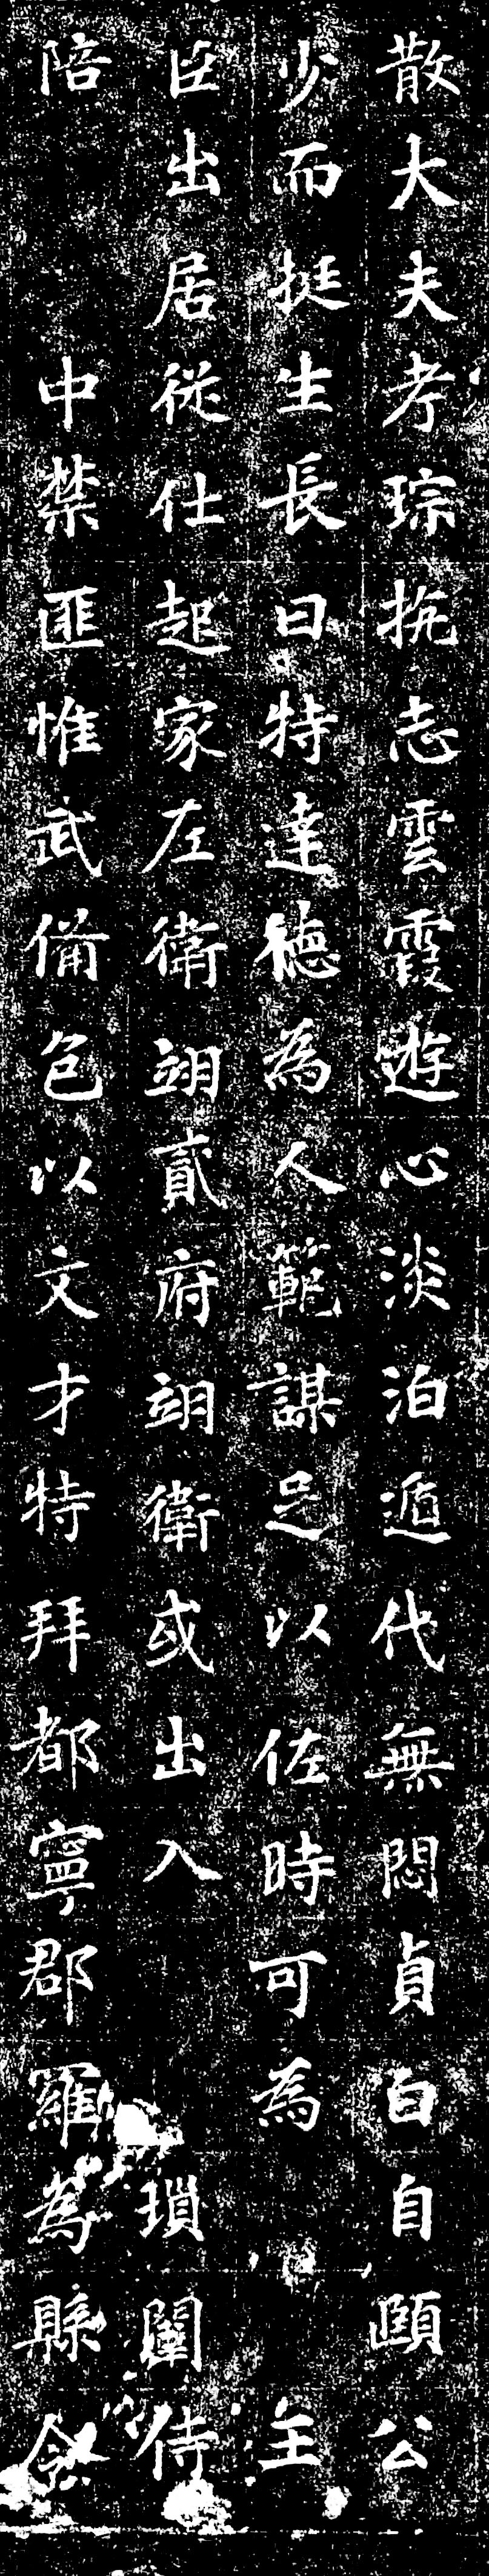 散大夫考琮抗志雲霞遊心淡泊遁代無悶貞白自頤公
少而挺生長曰特達德為人範謀足以佐時可為主
臣出居從仕起家左衛翊貳府翊衛或出入瑣闈侍
陪中禁匪惟武備包以文才特拜都寧郡羅為縣令